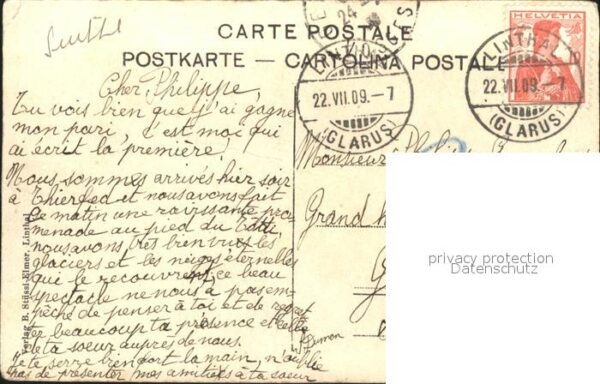 Linthal
CARTE POSTALE
POSTKARTE — CARTOLINA POSTALE
LINTHAL
22.VII.09.–7
(GLARUS)
LINTHAL
22.VII.09.–7
(GLARUS)
HELVETIA
10
Cher Philippe,
Tu vois bien que j'ai gagné
mon pari, c'est moi qui
ai écrit la première!
Nous sommes arrivés hier soir
à Thierfed et nous avons fait
ce matin une ravissante pro
menade au pied du Tödi,
nous avons très bien vu les
glaciers et les neiges éternelles
qui le recouvrent, ce beau
spectacle ne nous a pas em-
pêché de penser à toi et de regret
ter beaucoup ta présence et celle
de ta soeur auprès de nous.
Je te serre bien fort la main, n'oublie
pas de présenter mes amitiés à ta soeur
Simon
Monsieur
Grand
Verlag B. Stüssi-Elmer, Linthal
privacy protection
Datenschutz